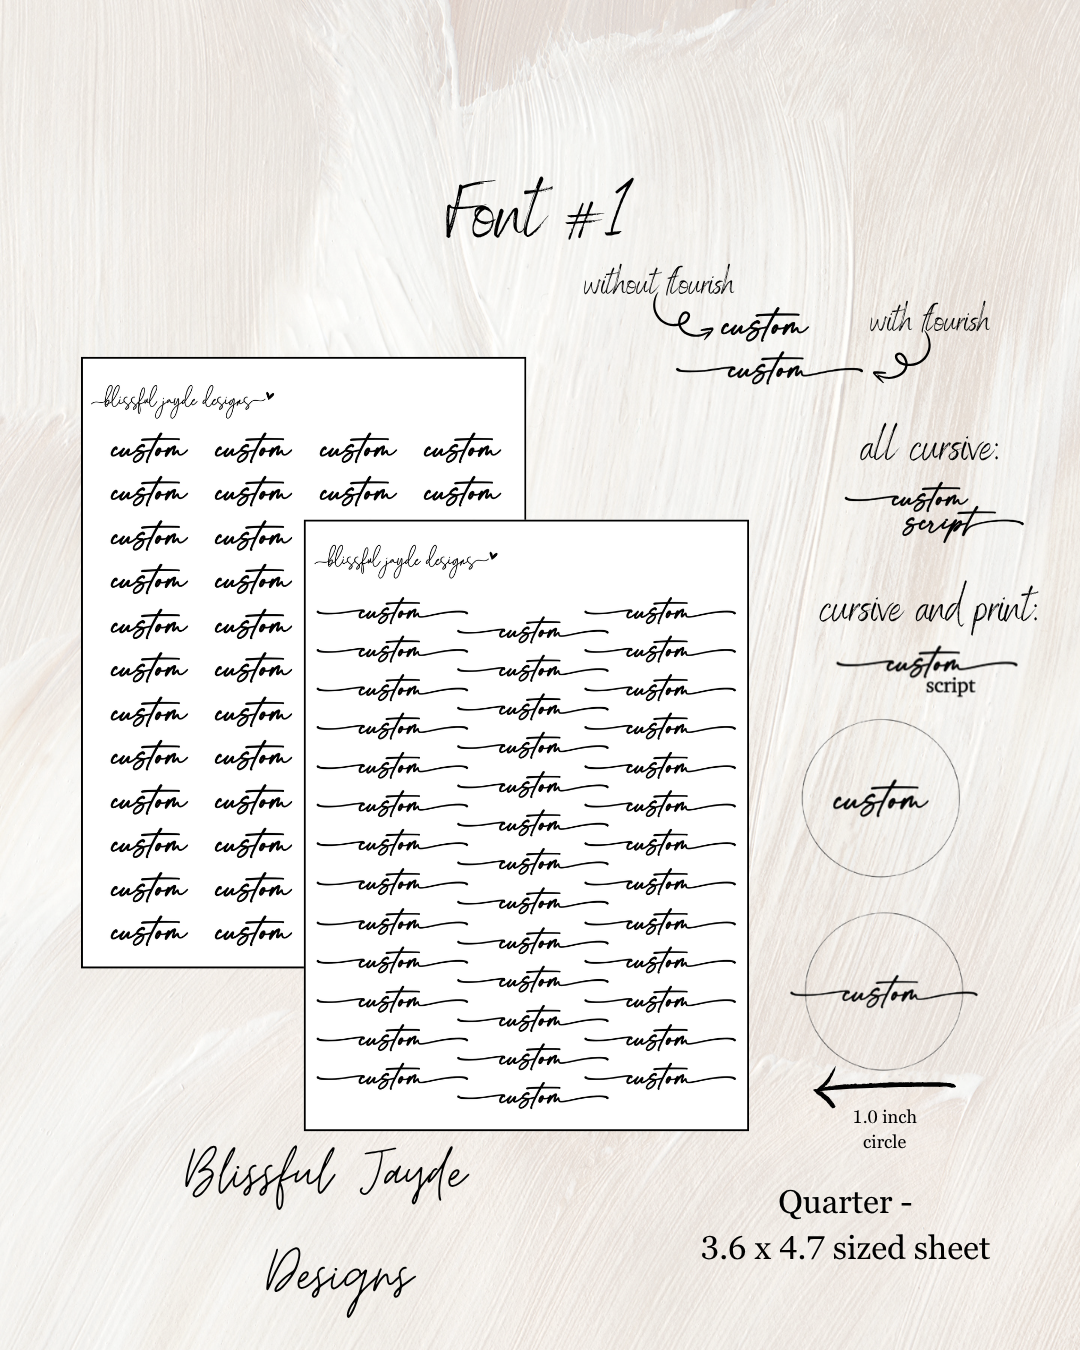 Font #1
without flourish
custom
with flourish
custom
all cursive:
custom
script
cursive and print:
custom
script
custom
custom
1.0 inch
circle
Quarter -
3.6 x 4.7 sized sheet
blissful jayde designs
custom custom custom custom
custom custom custom custom
custom custom
custom custom
custom custom
custom custom
custom custom
custom custom
custom custom
custom custom
custom custom
custom custom
blissful jayde designs
custom custom
custom
custom custom
custom
custom custom
custom
custom custom
custom
custom custom
custom
custom custom
custom
custom custom
custom
custom custom
custom
custom custom
custom
custom custom
custom
custom custom
custom
custom custom
custom
custom custom
custom
Blissful Jayde
Designs